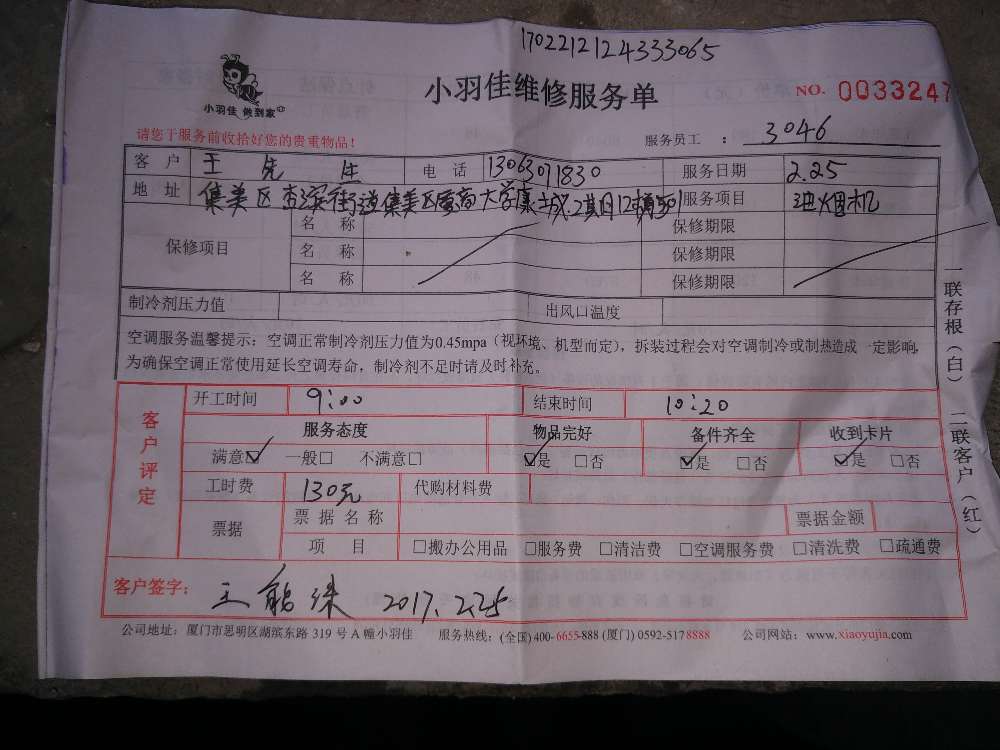 1702212124333065
小羽佳 做到家
小羽佳维修服务单
NO. 0033247
请您于服务前收拾好您的贵重物品！
服务员工 ： 3046
客 户 王先生 电 话 13063071830 服务日期 2.25
地 址 集美区杏滨街道集美区 大学康城2期 服务项目 油烟机
保修项目 名 称 保修期限
名 称 保修期限
名 称 保修期限
制冷剂压力值 出风口温度
空调服务温馨提示：空调正常制冷剂压力值为0.45mpa（视环境、机型而定），拆装过程会对空调制冷或制热造成一定影响，
为确保空调正常使用延长空调寿命，制冷剂不足时请及时补充。
客户评定
开工时间 9:00 结束时间 10:20
服务态度 物品完好 备件齐全 收到卡片
满意☑ 一般□ 不满意□ ☑是 □否 ☑是 □否 ☑是 □否
工时费 130元 代购材料费
票据 票据名称 票据金额
项 目 □搬办公用品 □服务费 □清洁费 □空调服务费 □清洗费 □疏通费
客户签字： 王能 2017.2.25
公司地址：厦门市思明区湖滨东路 319 号 A 幢小羽佳 服务热线：(全国) 400-6655-888 (厦门) 0592-5178888 公司网站：www.xiaoyujia.com
一联存根（白） 二联客户（红）